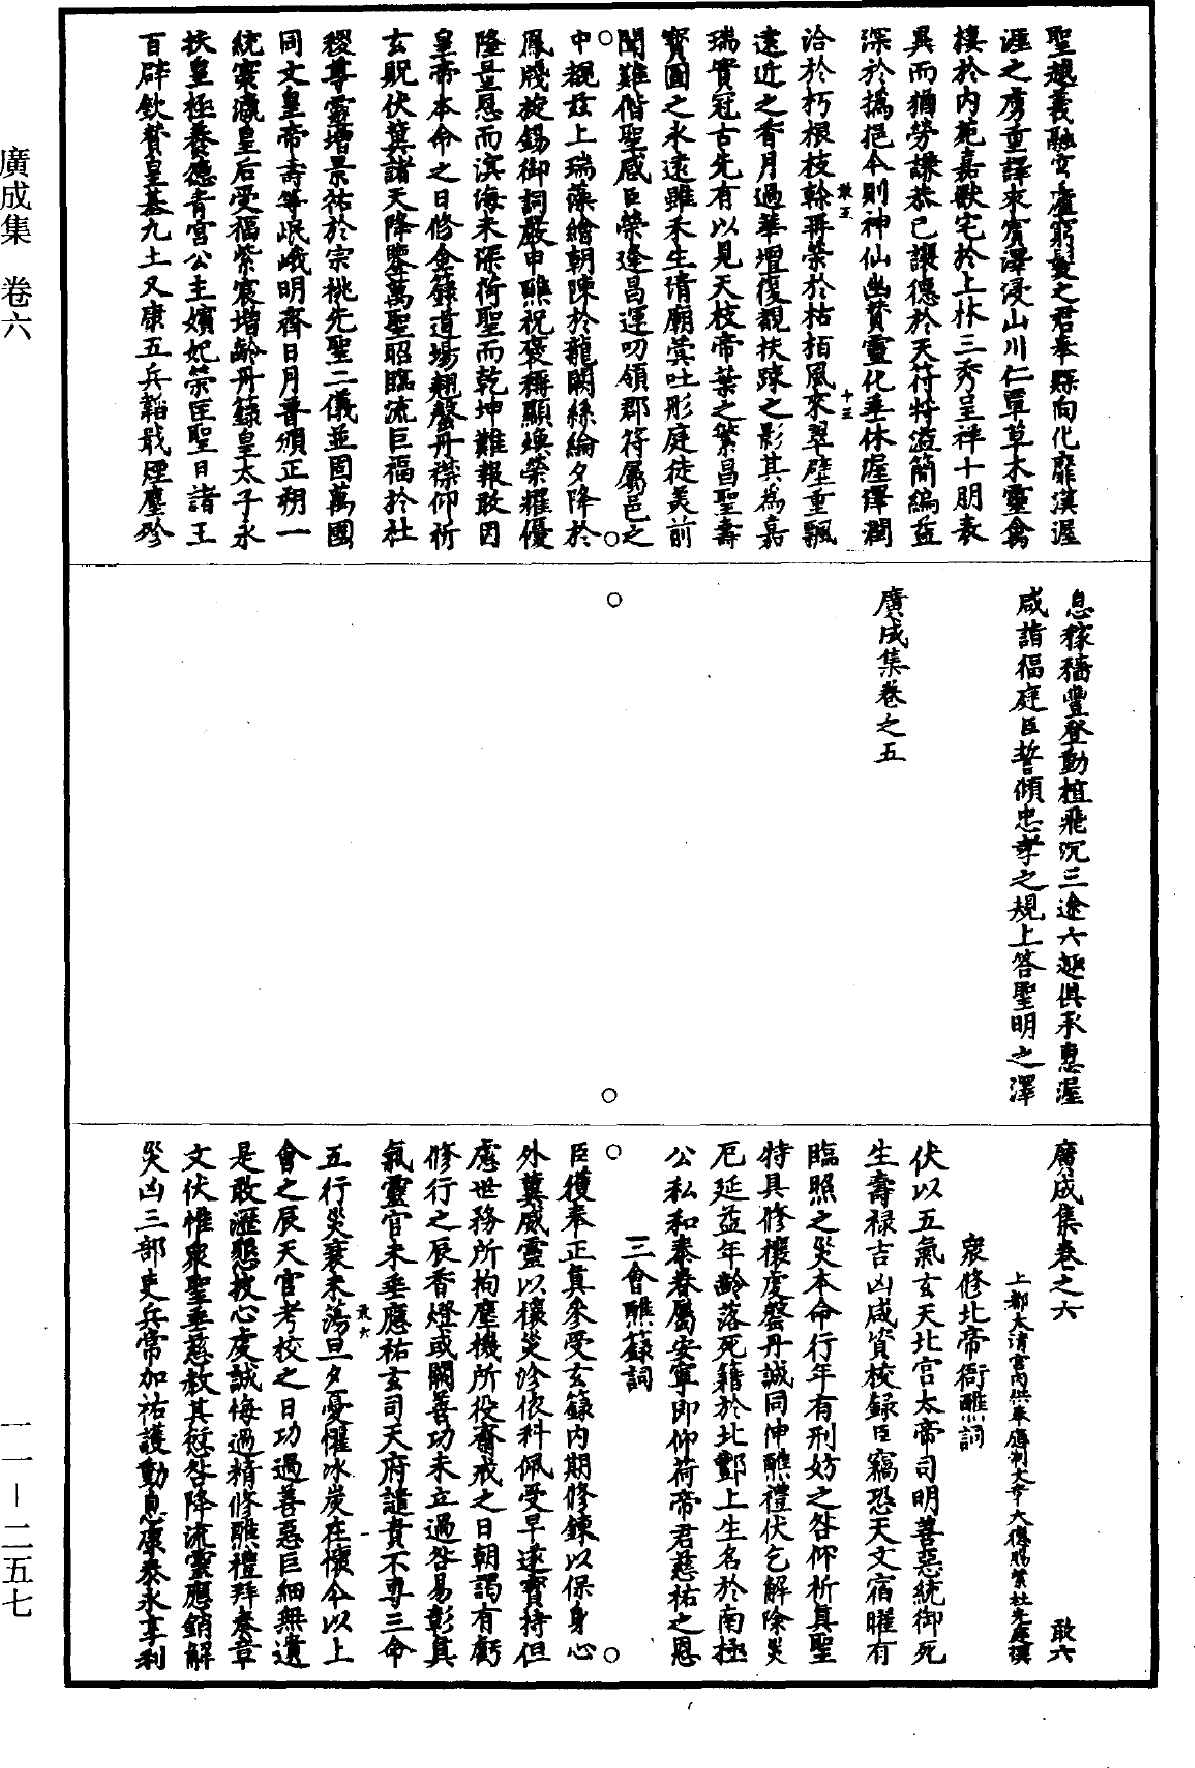 聖越義融宮盧窮髮之君奉縣向化靡漠渥
涯之虜重譯來賓澤浸山川仁覃草木靈禽
棲於內苑嘉獸宅於上林三秀呈祥十朋表
異而猶勞謙恭己讓德於天符特溢簡編益
深於撝挹今則神仙幽贊靈化垂休渥澤潤
洽於朽根枝幹再榮於枯栢風來翠壁重飄
遠近之香月過華壇復覩扶踈之影其為嘉
瑞實冠古先有以見天枝帝葉之繁昌聖壽
寳圖之永遠雖禾生清廟蓂吐彤庭徒美前
聞難偕聖感臣榮逢昌運叨領郡符屬邑之
中覩兹上瑞藻繪朝陳於龍闕絲綸夕降於
鳳牋旋錫御詞嚴申醮祝褒稱顯煥榮耀優
隆量恩而溟海未深荷聖而乾坤難報敢因
皇帝本命之日修金籙道場翹罄丹襟仰祈
玄貺伏冀諸天降鑒萬聖昭臨流巨福於社
稷尊靈增景祐於宗祧先聖二儀並固萬國
同文皇帝壽等岷峨明齊日月普頒正朔一
統寰瀛皇后受福紫宸增齡丹籙皇太子永
扶皇極養德青宮公主嬪妃榮匡聖日諸王
百辟欽贊皇基九土乂康五兵韜戢煙塵殄
敢五
十五
息稼穡豐登動植飛沉三途六趣俱承惠渥
咸詣福庭臣誓傾忠孝之規上答聖明之澤
廣成集卷之五
廣成集卷之六
敢六
上都太清宮內供奉應制文章大德賜紫杜光庭撰
衆修北帝衙醮詞
伏以五氣玄天北宮太帝司明善惡統御死
生壽祿吉凶咸資校録臣竊恐天文宿曜有
臨照之災本命行年有刑妨之咎仰祈真聖
特具修禳虔罄丹誠同伸醮禮伏乞解除災
厄延益年齡落死籍於北酆上生名於南極
公私和泰眷屬安寧即仰荷帝君慈祐之恩
三會醮籙詞
臣獲奉正真參受玄籙內期修鍊以保身心
外冀威靈以禳災沴依科佩受早遂寳持但
慮世務所拘塵機所役齋戒之日朝謁有虧
修行之辰香燈或闕善功未立過咎易彰真
氣靈官未垂應祐玄司天府譴責不專三命
五行災衰未蕩旦夕憂懼冰炭在懷今以上
會之辰天官考校之日功過善惡巨細無遺
是敢瀝懇披心虔誠悔過精修醮禮拜奏章
文伏惟衆聖垂慈赦其愆咎降流靈應銷解
災凶三部吏兵常加祐護動息康泰永享利
敢六
廣成集 卷六
一一－二五七